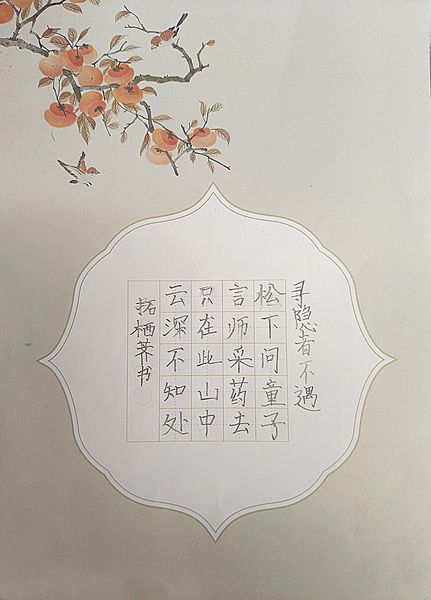 寻隐者不遇
松下问童子
言师采药去
只在此山中
云深不知处
拓栖荠书